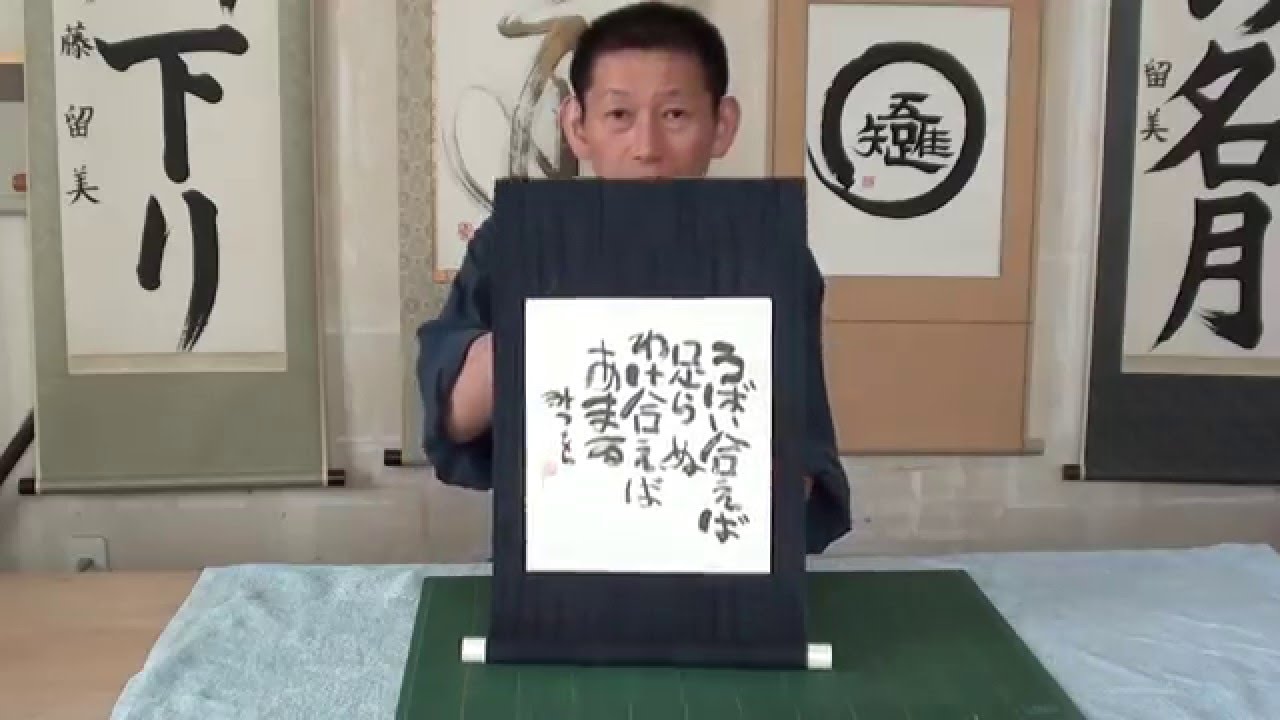 うばい合えば
足らぬ
わけ合えば
あまる
みつを
名月
留美
吾唯足知
下り
藤留美